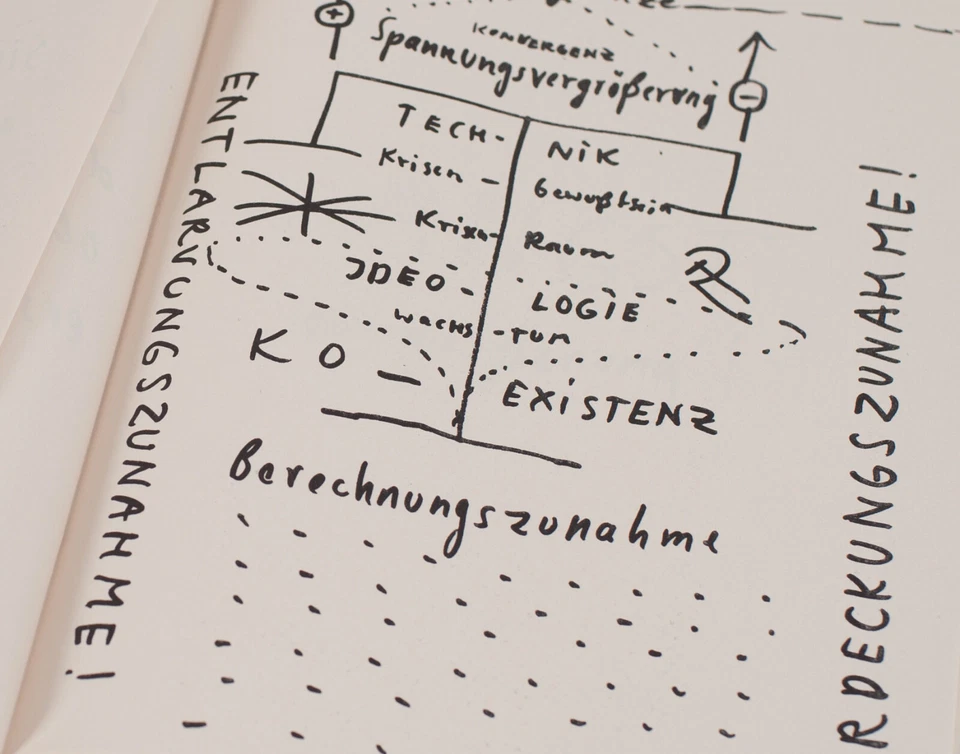 KONVERGENZ
Spannungsvergrößerung
ENTLARVUNGSZUNAHME!
TECH- NIK
Krisen - bewußtsein
Krisen- Raum
IDEO - LOGIE
wachs - TUM
KO - EXISTENZ
Berechnungszunahme
RDECKUNGSZUNAHME!